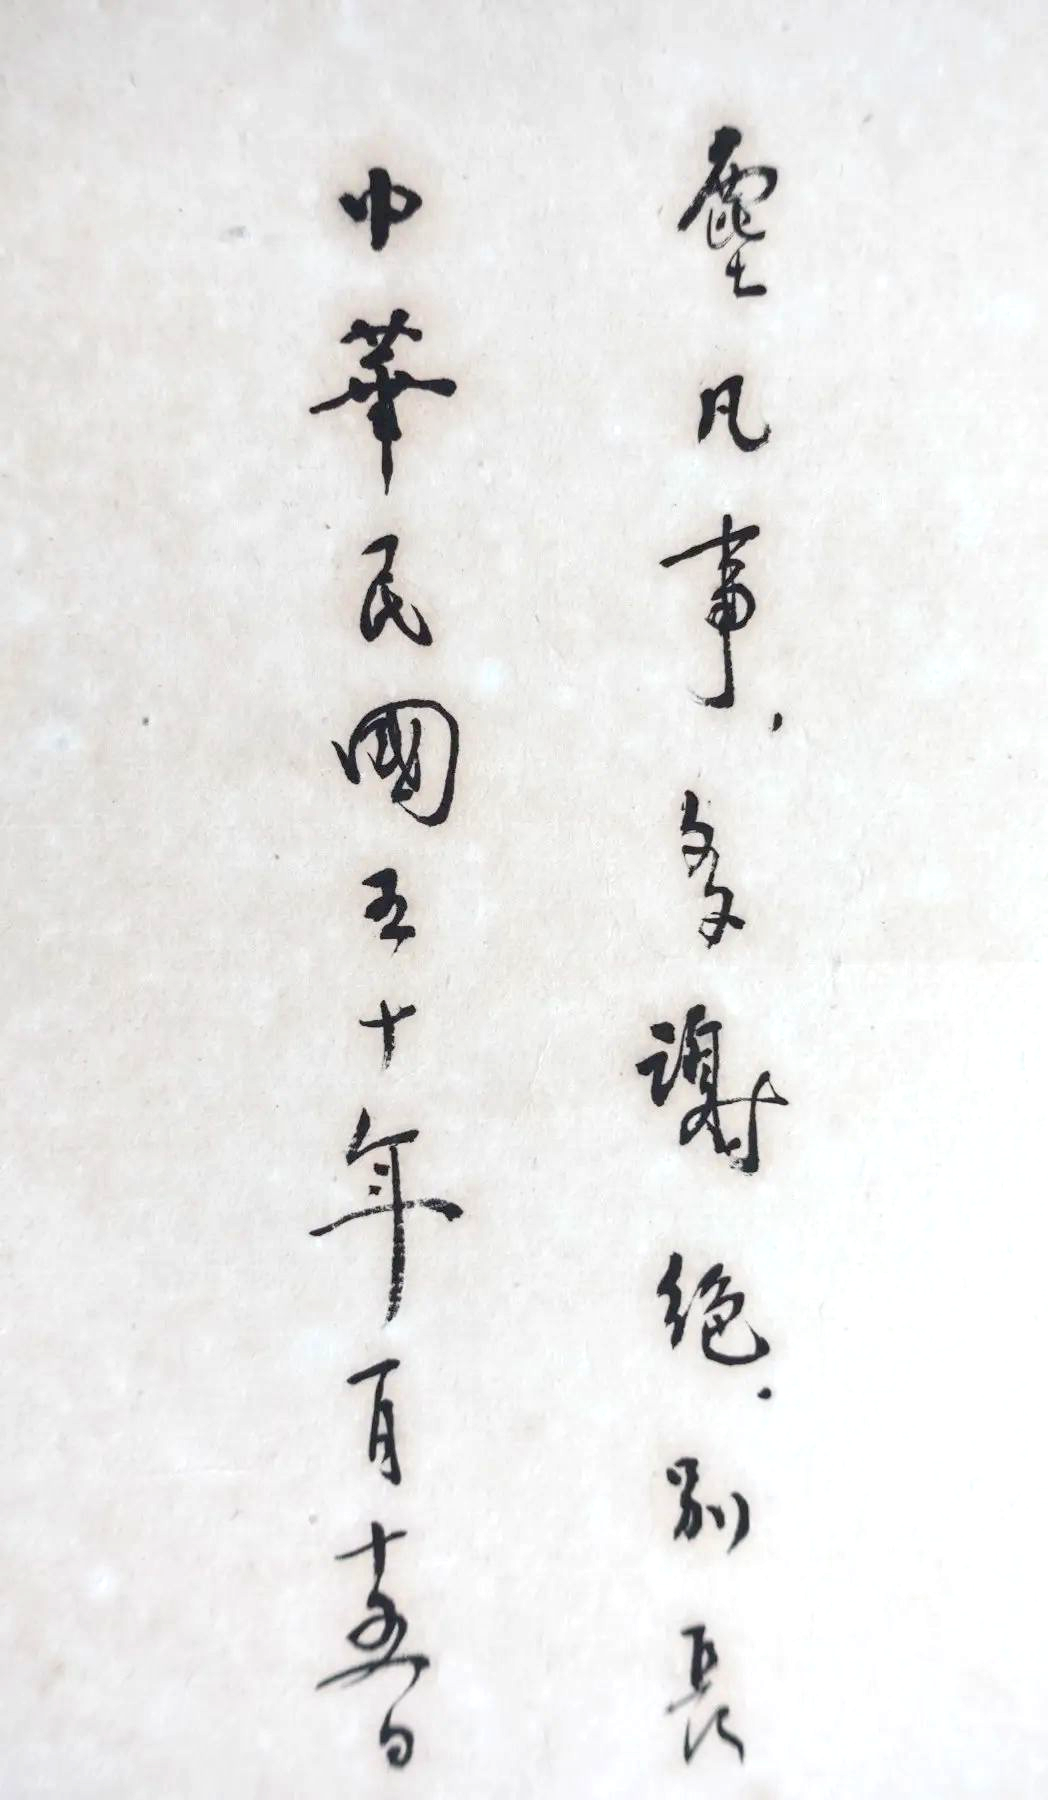 塵凡事，多謝絕．別長
中華民國五十年一月十五日